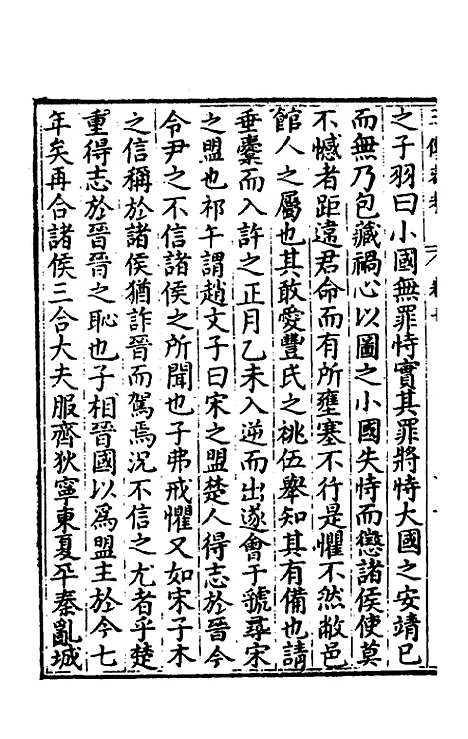 之子羽曰小國無罪恃實其罪將恃大國之安靖已
而無乃包藏禍心以圖之小國失恃而懲諸侯使莫
不憾者距遠君命而有所壅塞不行是懼不然敝邑
館人之屬也其敢愛豐氏之祧伍舉知其有備也請
垂櫜而入許之正月乙未入逆而出遂會于虢尋宋
之盟也祁午謂趙文子曰宋之盟楚人得志於晉今
令尹之不信諸侯之所聞也子弗戒懼又如宋子木
之信稱於諸侯猶詐晉而駕焉況不信之尤者乎楚
重得志於晉晉之恥也子相晉國以爲盟主於今七
年矣再合諸侯三合大夫服齊狄寧東夏平秦亂城